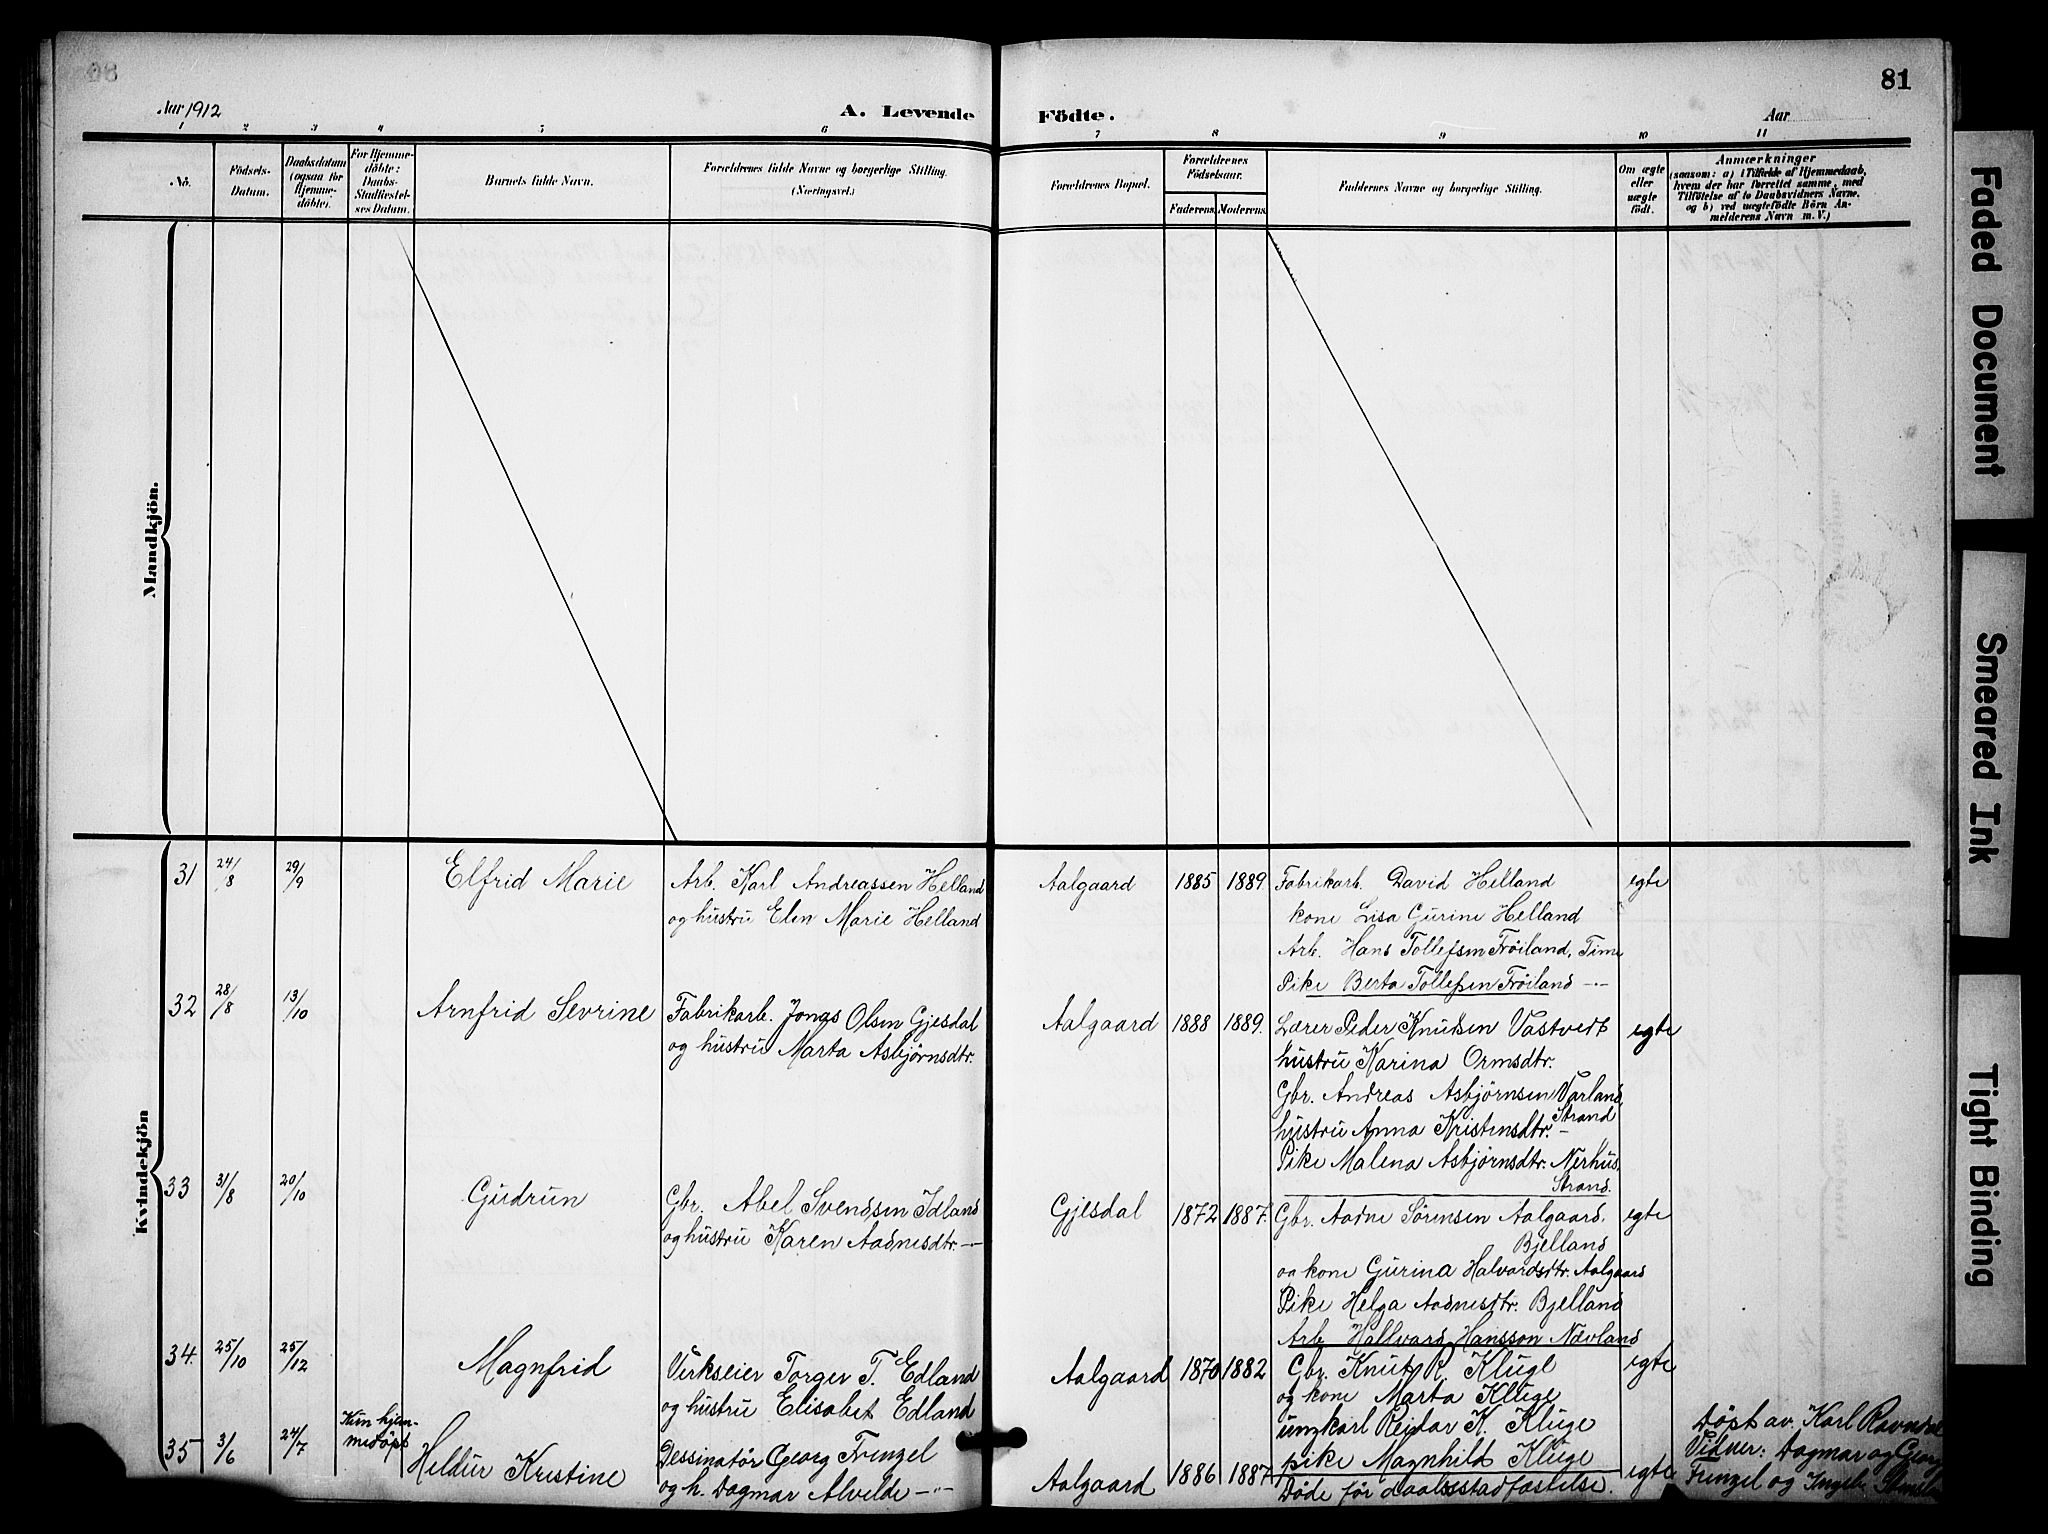 81
Aar 1912
A. Levende Födte.
Aar
1 2 3 4 5 6 7 8 9 10 11
No.
Födsels-Datum.
Daabsdatum (ogsaa for Hjemme-døbte).
For Hjemme-døbte: Daabs-Stadfæstel-ses Datum.
Barnets fulde Navn.
Forældrenes fulde Navne og borgerlige Stilling.
(Næringsvei.)
Forældrenes Bopæl.
Forældrenes Födselsaar.
Faderens. Moderens.
Faddernes Navne og borgerlige Stilling.
Om ægte eller uægte født.
Anmærkninger
(saasom: a) i Tilfælde af Hjemmedaab, hvem der har forrettet samme, med Tilføielse af to Daabsvidners Navne. og b) ved uægtefødte Börn Anmelderens Navn m. V.)
Mandkjön.
Kvindekjön
31 24/8 29/9 Elfrid Marie
Arb. Karl Andreassen Helland
og hustru Elen Marie Helland
Aalgaard 1885 1889.
Fabrikarb. David Helland
kone Lisa Gurine Helland
Arb. Hans Tollefsen Frøiland, Time
Pike Berta Tollefsen Frøiland -"-
egte
32 28/8 13/10 Arnfrid Sevrine
Fabrikarb. Jonas Olsen Gjesdal
og hustru Marta Asbjørnsdtr.
Aalgaard 1888 1889.
Lærer Peder Knudsen Vastveit
hustru Karina Ormsdtr.
Gbr. Andreas Asbjørnsen Varland
Strand
hustru Anna Kristensdtr. -"-
Pike Malena Asbjørnsdtr. Nerhus
Strand.
egte
33 31/8 20/10 Gudrun
Gbr. Abel Svendsen Idland
og hustru Karen Aadnesdtr. -"-
Gjesdal 1872 1887.
Gbr. Aadne Sørensen Aalgaard,
Bjelland
og kone Gurina Halvardsdtr. Aalgaard
Pike Helga Aadnesdtr. Bjelland
Arb. Hallvard Hansson Nævland
egte
34. 25/10 25/12 Magnfrid
Verkseier Torger T. Edland
og hustru Elisabet Edland
Aalgaard 1870 1882
Gbr. Knut R. Kluge
og kone Marta Kluge
ungkarl Reidar K. Kluge
pike Magnhild Kluge
egte
35 3/6 24/7 Kun hjem-
medøpt
Heldur Kristine
Dessinatør Georg Frenzel
og h. Dagmar Alvilde -"-
Aalgaard 1886 1887
Døde før daabsstadfæstelse.
egte
Døpt av Karl
Vidner: Dagmar og Georg
Frenzel og
Faded Document
Smeared Ink
Tight Binding